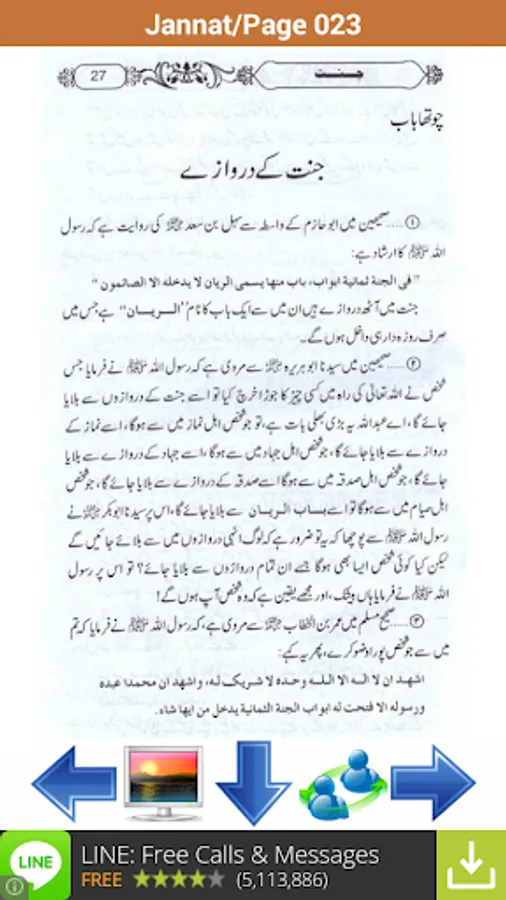 Jannat/Page 023
27
جنت
چوتھا باب
جنت کے دروازے
①.....صحیحین میں ابو حازم کے واسطہ سے سہل بن سعد ﷜ کی روایت ہے کہ رسول
اللہ ﷺ کا ارشاد ہے:
"فی الجنة ثمانیة ابواب، باب منها یسمی الریان لا یدخله الا الصائمون"
جنت میں آٹھ دروازے ہیں ان میں سے ایک باب کا نام "الریان" ہے جس میں
صرف روزہ دار ہی داخل ہوں گے۔
②.....صحیحین میں سیدنا ابو ہریرہ ﷜ سے مروی ہے کہ رسول اللہ ﷺ نے فرمایا جس
شخص نے اللہ تعالی کی راہ میں کسی چیز کا جوڑا خرچ کیا تو اسے جنت کے دروازوں سے بلایا
جائے گا، اے عبداللہ یہ بڑی بھلی بات ہے، تو جو شخص اہل نماز میں سے ہوگا، اسے نماز کے
دروازے سے بلایا جائے گا، جو شخص اہل جہاد میں سے ہوگا، اسے جہاد کے دروازے سے بلایا
جائے گا، جو شخص اہل صدقہ میں سے ہوگا اسے صدقہ کے دروازے سے بلایا جائے گا، جو شخص
اہل صیام میں سے ہوگا تو اسے باب الریان سے بلایا جائے گا، اس پر سیدنا ابو بکر ﷜ نے
رسول اللہ ﷺ سے پوچھا کہ یہ تو ضرور ہے کہ لوگ انہی دروازوں میں سے بلائے جائیں گے
لیکن کیا کوئی شخص ایسا بھی ہوگا جسے ان تمام دروازوں سے بلایا جائے؟ تو اس پر رسول
اللہ ﷺ نے فرمایا ہاں بیشک، اور مجھے یقین ہے کہ وہ شخص آپ ہوں گے!
③.....صحیح مسلم میں عمر بن الخطاب ﷜ سے مروی ہے، کہ رسول اللہ ﷺ نے فرمایا کہ تم
میں سے جو شخص پورا وضو کرے، پھر یہ کہے:
اشهد ان لا اله الا الله وحده لا شریک له، واشهد ان محمدا عبده
ورسوله الا فتحت له ابواب الجنة الثمانیة یدخل من ایها شاء.
LINE
LINE: Free Calls & Messages
FREE (5,113,886)